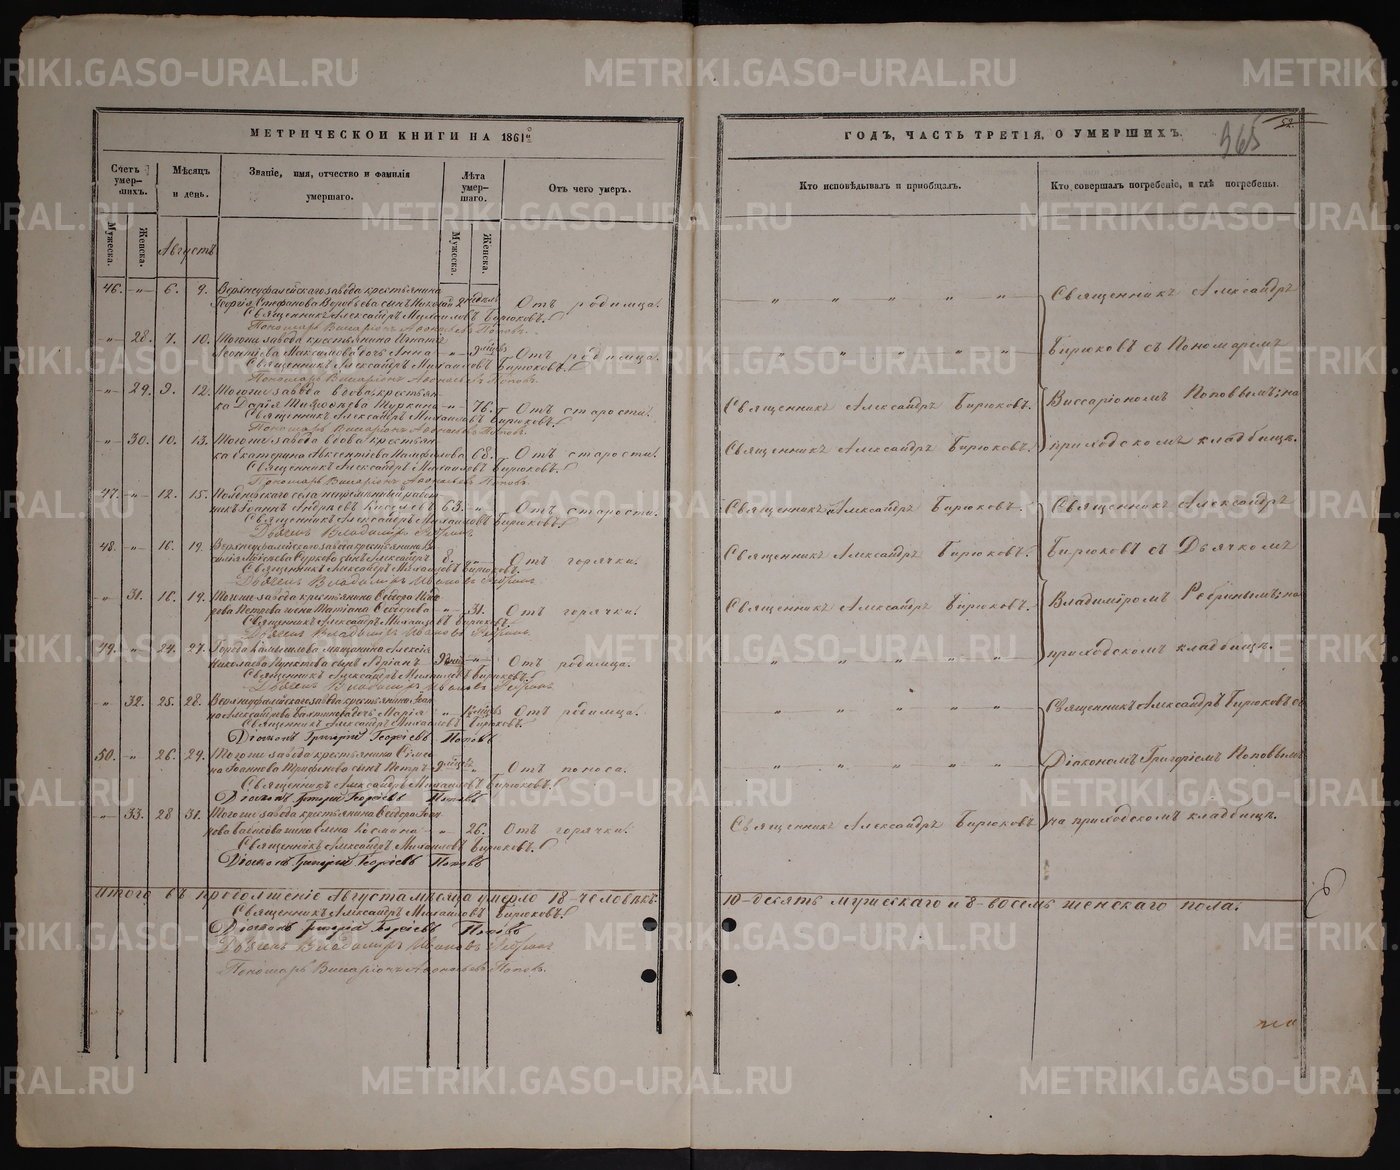 МЕТРИЧЕСКОЙ КНИГИ НА 1861й
Счетъ умер-шихъ.
Мѣсяцъ и день.
Званіе, имя, отчество и фамилія умершаго.
Лѣта умер-шаго.
Отъ чего умеръ.
Мужеска.
Женска.
Августъ
Мужеска.
Женска.
46. -„- 6. 9. Верхнеуфалейскаго завода крестьянина
Георгія Стефанова Воробьева сынъ Николай Отъ родимца.
Священникъ Александръ Михаиловъ Бирюковъ.
Пономарь Виссаріонъ Попов.
-„- 28. 7. 10. Тогоже завода крестьянина Игнатія
Леонтіева Максимова дочь Анна -„- Отъ родимца.
Священникъ Александръ Михаиловъ Бирюковъ.
Пономарь Виссаріонъ Попов.
-„- 29. 9. 12. Тогоже завода вдова крестьян
ка Дарія -„- 76. Отъ старости.
Священникъ Александръ Михаиловъ Бирюковъ.
Пономарь Виссаріонъ Попов.
-„- 30. 10. 13. Тогоже завода вдова крестьян
ка Екатерина Авксентіева Памфилова 68. Отъ старости.
Священникъ Александръ Михаиловъ Бирюковъ.
Пономарь Виссаріонъ Попов.
47. -„- 12. 15. села непремѣнный работ
никъ Іоаннъ Андреевъ 63. -„- Отъ старости.
Священникъ Александръ Михаиловъ Бирюковъ.
Дьячекъ Владимиръ
48. -„- 16. 19. Верхнеуфалейскаго завода крестьянина Ва
силія сынъ Александръ 8. „ Отъ горячки.
Священникъ Александръ Михаиловъ Бирюковъ.
Дьячекъ Владимиръ Ивановъ
-„- 31. 16. 19. Тогоже завода крестьянина Ѳеодора
Петрова жена Татіана Ѳеодорова -„- 31. Отъ горячки.
Священникъ Александръ Михаиловъ Бирюковъ.
Дьячекъ Владимиръ Ивановъ
49. „ 24. 27. Города Камышлова мѣщанина Алексія
Николаева сынъ Адріанъ -„- Отъ родимца.
Священникъ Александръ Михаиловъ Бирюковъ.
Дьячекъ Владимиръ Ивановъ
„ 32. 25. 28. Верхнеуфалейскаго завода крестьянина
Александрова дочь Марія -„- Отъ родимца.
Священникъ Александръ Михаиловъ Бирюковъ.
Діаконъ Григорій Георгіевъ Поповъ
50. „ 26. 29. Тогоже завода крестьянина Сімео
на Іоаннова Трифонова сынъ Петръ „ Отъ поноса.
Священникъ Александръ Михаиловъ Бирюковъ.
Діаконъ Григорій Георгіевъ Поповъ
-„- 33. 28 31. Тогоже завода крестьянина Ѳеодора
жена Елена Космина -„- 26. Отъ горячки.
Священникъ Александръ Михаиловъ Бирюковъ.
Діаконъ Григорій Георгіевъ Поповъ
Итого въ продолженіе Августа мѣсяца умерло 18-человѣкъ.
Священникъ Александръ Михаиловъ Бирюковъ.
Діаконъ Григорій Георгіевъ Поповъ
Дьячекъ Владимиръ Ивановъ
Пономарь Виссаріонъ Попов.
52.
365
ГОДЪ, ЧАСТЬ ТРЕТІЯ, О УМЕРШИХЪ.
Кто исповѣдывалъ и приобщалъ.
Кто совершалъ погребеніе, и гдѣ погребены.
„ „ „ „ „ Священникъ Александръ
„ „ „ „ „ Бирюковъ съ Пономаремъ
Священникъ Александръ Бирюковъ. Виссаріономъ Поповымъ; на
Священникъ Александръ Бирюковъ. приходскомъ кладбищѣ.
Священникъ Александръ Бирюковъ. Священникъ Александръ
Священникъ Александръ Бирюковъ. Бирюковъ съ Дьячкомъ
Священникъ Александръ Бирюковъ. Владиміромъ на
„ „ „ „ „ приходскомъ кладбищѣ.
„ „ „ „ „ Священникъ Александръ Бирюковъ съ
„ „ „ „ „ Діакономъ Григоріемъ Поповымъ
Священникъ Александръ Бирюковъ на приходскомъ кладбищѣ.
10-десять мужескаго и 8-восемь женскаго пола.
METRIKI.GASO-URAL.RU